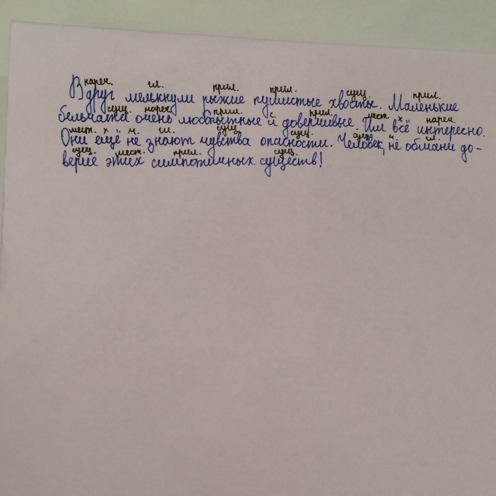 нареч. гл. прил. прил. сущ. прил.
Вдруг мелькнули рыжие пушистые хвосты. Маленькие
сущ. нареч. прил. с прил. мест. х нареч.
бельчата очень любопытные и доверчивые. Им всё интересно.
мест. х ч. гл. сущ. сущ. сущ. ч гл.
Они ещё не знают чувства опасности. Человек, не обмани до-
сущ. мест. прил. сущ.
верие этих симпатичных существ!